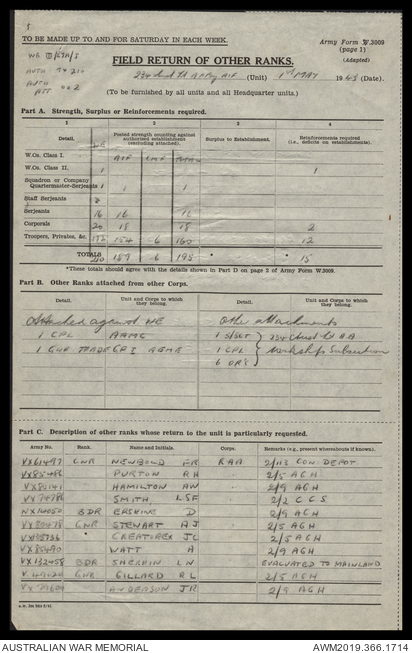 TO BE MADE UP TO AND FOR SATURDAY IN EACH WEEK.
Army Form W.3009
(page 1)
(Adapted)
FIELD RETURN OF OTHER RANKS.
(Unit) 1st MAY 1943 (Date).
(To be furnished by all units and all Headquarter units.)
Part A. Strength, Surplus or Reinforcements required.
1 2 3 4
Detail. Posted strength counting against authorized establishment (excluding attached). Surplus to Establishment. Reinforcements required (i.e., deficits on establishment).
W.Os. Class I.
W.Os. Class II. 1 1
Squadron or Company
Quartermaster-Serjeants 1 1 1
Staff Serjeants
Serjeants 16 16 16
Corporals 20 18 18 2
Troopers, Privates, &c. 172 154 6 160 12
TOTALS 210 189 6 195 * 15
*These totals should agree with the details shown in Part D on page 2 of Army Form W.3009.
Part B. Other Ranks attached from other Corps.
Detail. Unit and Corps to which they belong. Detail. Unit and Corps to which they belong.
Attached against WE Other attachments
1 CPL AAMC 1 S/SGT
1 CPL Workshops Subsection
6 OR's
Part C. Description of other ranks whose return to the unit is particularly requested.
Army No. Rank. Name and Initials. Corps. Remarks (e.g., present whereabouts if known).
VX61497 GNR NEWBOLD FR RAA 2/113 CON DEPOT
PURTON RH 2/5 AGH
HAMILTON AW 2/9 AGH
SMITH LSF 2/2 CCS
NX14050 BDR ERSKINE D 2/9 AGH
GNR STEWART AJ 2/5 AGH
CREATOREX JC 2/5 AGH
WATT A 2/9 AGH
VX132458 BDR SHERRIN LN EVACUATED TO MAINLAND
GNR GILLARD RL 2/5 AGH
ANDERSON JR 2/5 AGH
AUSTRALIAN WAR MEMORIAL
AWM2019.366.1714